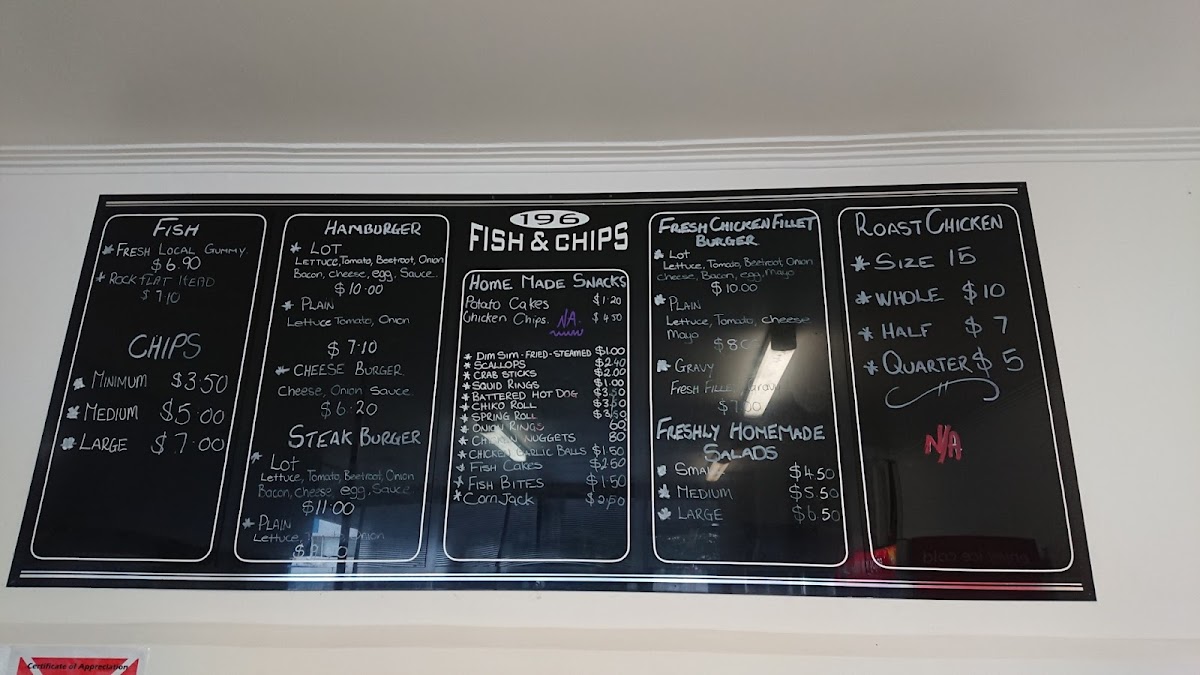 FISH
FRESH LOCAL GUMMY.
$6.90
ROCK FLAT HEAD
$7.10
CHIPS
MINIMUM $3.50
MEDIUM $5.00
LARGE $7.00
HAMBURGER
LOT
LETTUCE, Tomato, Beetroot, Onion
Bacon, cheese, egg, Sauce.
$10.00
PLAIN
Lettuce Tomato, Onion
$7.10
CHEESE BURGER
Cheese, Onion Sauce.
$6.20
STEAK BURGER
LOT
Lettuce, Tomato, Beetroot, Onion
Bacon, cheese, egg, Sauce
$11.00
PLAIN
Lettuce, Onion
196
FISH & CHIPS
HOME MADE SNACKS
Potato Cakes $1.20
Chicken Chips. NA. $4.50
DIM SIM - FRIED - STEAMED $1.00
SCALLOPS $2.40
CRAB STICKS $2.00
SQUID RINGS $1.00
BATTERED HOT DOG $3.50
CHIKO ROLL $3.50
SPRING ROLL $3.50
ONION RINGS 60
CHICKEN NUGGETS 80
CHICKEN GARLIC BALLS $1.50
FISH CAKES $2.50
FISH BITES $1.50
CORN JACK $2.50
FRESH CHICKEN FILLET
BURGER
LOT
Lettuce, Tomato, Beetroot, Onion
cheese, Bacon, egg, Mayo
$10.00
PLAIN
Lettuce, Tomato, cheese
Mayo
GRAVY
FRESH Gravy
FRESHLY HOMEMADE
SALADS
SMALL $4.50
MEDIUM $5.50
LARGE $6.50
ROAST CHICKEN
SIZE 15
WHOLE $10
HALF $7
QUARTER $5
N/A
Certificate of Appreciation